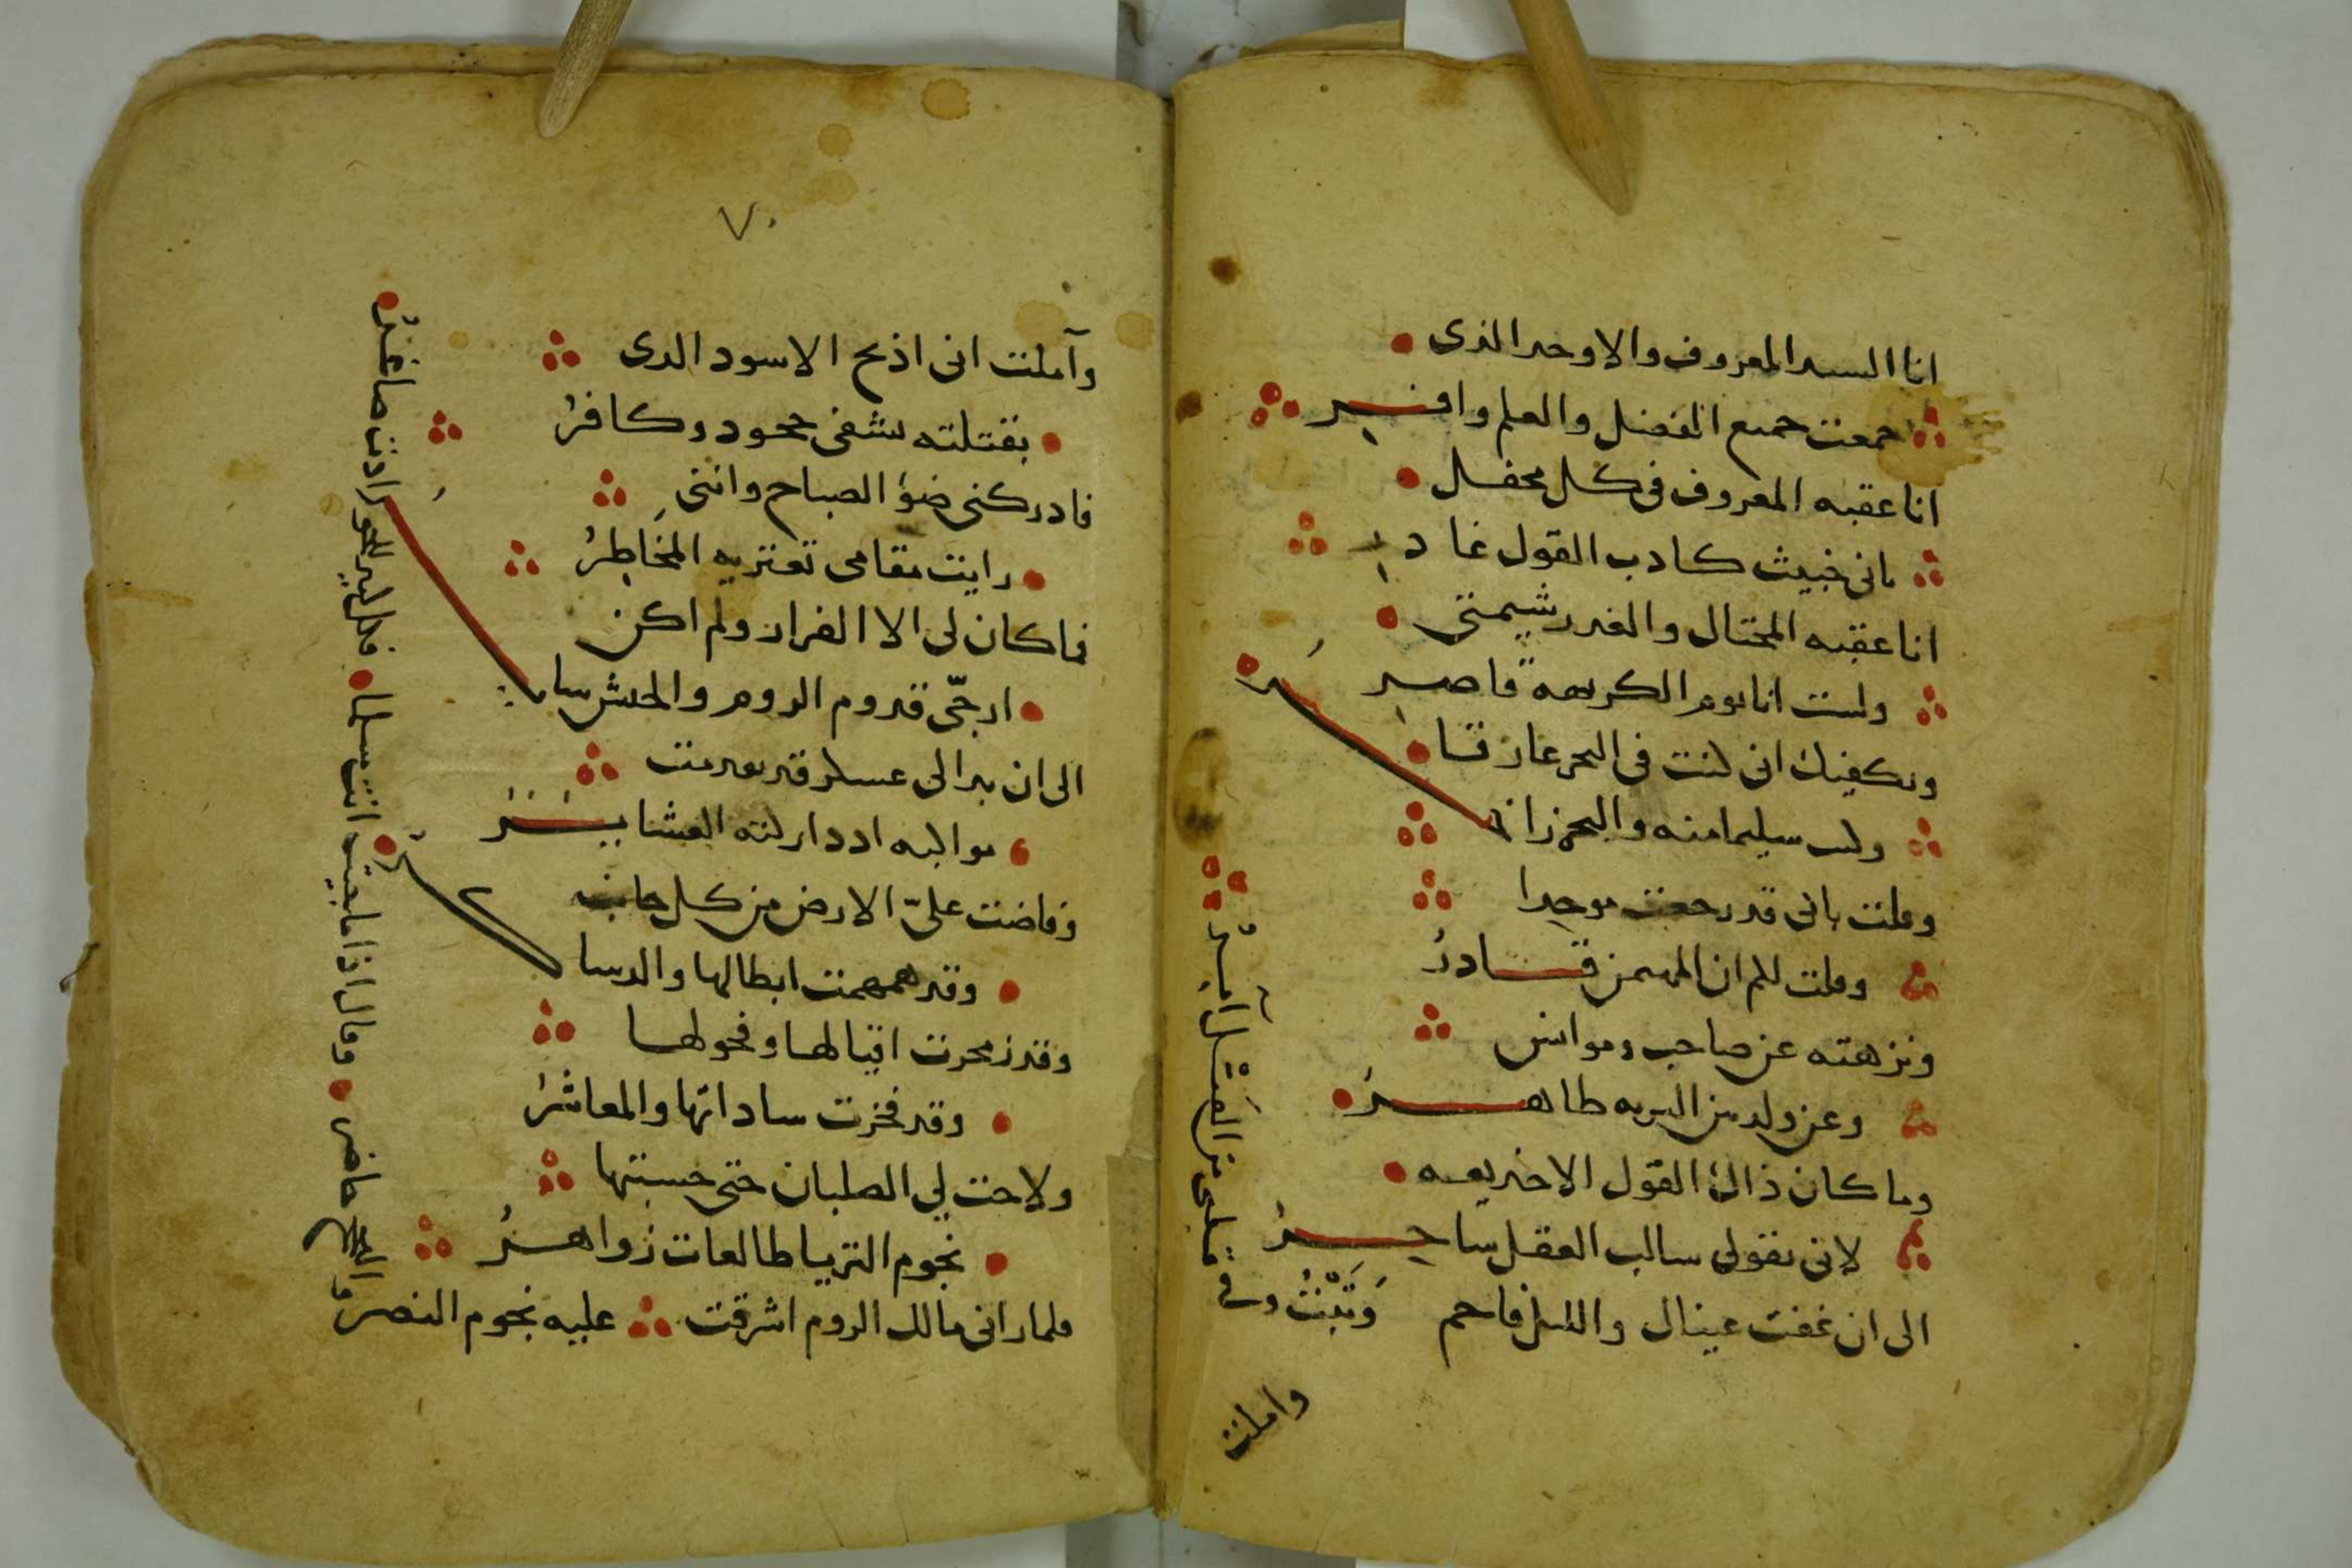 انا السيد المعروف والاوحد الذى
جمعت جميع الفضل والعلم وافر
انا عقبه المعروف فى كل محفل
بانى خبيث كادب القول غادر
انا عقبه المحتال والغدر شيمتى
ولست انا يوم الكريهة قاصر
ويكفيك انى كنت فى البحر غارقا
ولست سليما منه والبحر زاخر
وقلت بانى قد رجعت موحدا
وقلت لكم ان المهيمن قادر
ونزهته عن صاحب وموانس
وعن ولد من البريه طاهر
وما كان ذاك القول الا خديعه
لانى بقولى سالب العقل ساحر
الى ان غفت عيناك والليل فاحم
وَتُبْتُ وفى قلبى من الفتك آمر
واملت
٧٠
وآملت انى اذبح الاسود الدى
بقتلته يشفى جحود وكافر
فادركنى ضوُ الصباح واننى
رايت مقامى تعتريه المخَاطِرُ
فما كان لى الا الفرار ولم اكن
ارجّى قدوم الروم والجيش ساير
الى ان بدا لى عسكر قد تقدمت
مواكبه اد دار كنه العشاير
وفاضت علىّ الارض من كل جانب
وقد همهمت ابطالها والدساكر
وقد زمجرت اقيالها وفحولها
وقد فخرت ساداتها والمعاشر
ولاحت لي الصلبان حتى حسبتها
نجوم الثريا طالعات زواهر
فلما رانى مالك الروم اشرقت عليه نجوم النصر
والعج حاضر وقال اذا ما جيت انت سلما